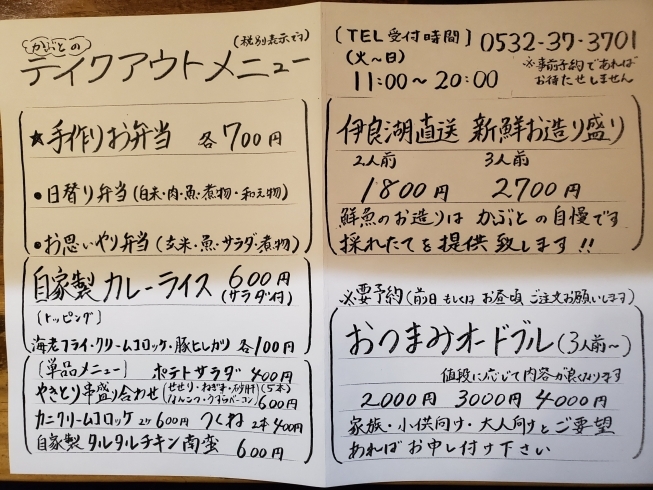 かぶとの
(税別表示です)
テイクアウトメニュー
★手作りお弁当 各700円
•日替り弁当(白米・肉・魚・煮物・和え物)
•お思いやり弁当(玄米・魚・サラダ・煮物)
自家製カレーライス 600円
(サラダ付)
[トッピング]
海老フライ・クリームコロッケ・豚ヒレカツ 各100円
[単品メニュー] ポテトサラダ 400円
やきとり串盛り合わせ(せせり・ねぎま・砂肝 (5本) 600円
なんこつ・うずらベーコン)
カニクリームコロッケ 2ケ600円 つくね 2本400円
自家製タルタルチキン南蛮 600円
[TEL受付時間] 0532-37-3701
(火〜日)
11:00〜20:00
※事前予約であれば
お待たせしません
伊良湖直送 新鮮お造り盛り
2人前 3人前
1800円 2700円
鮮魚のお造りは かぶとの自慢です
採れたてを提供致します!!
※要予約(前日もしくはお昼頃ご注文お願いします)
おつまみオードブル(3人前〜)
値段に応じて内容が良くなります
2000円 3000円 4000円
家族・小供向け・大人向けとご要望
あればお申し付け下さい